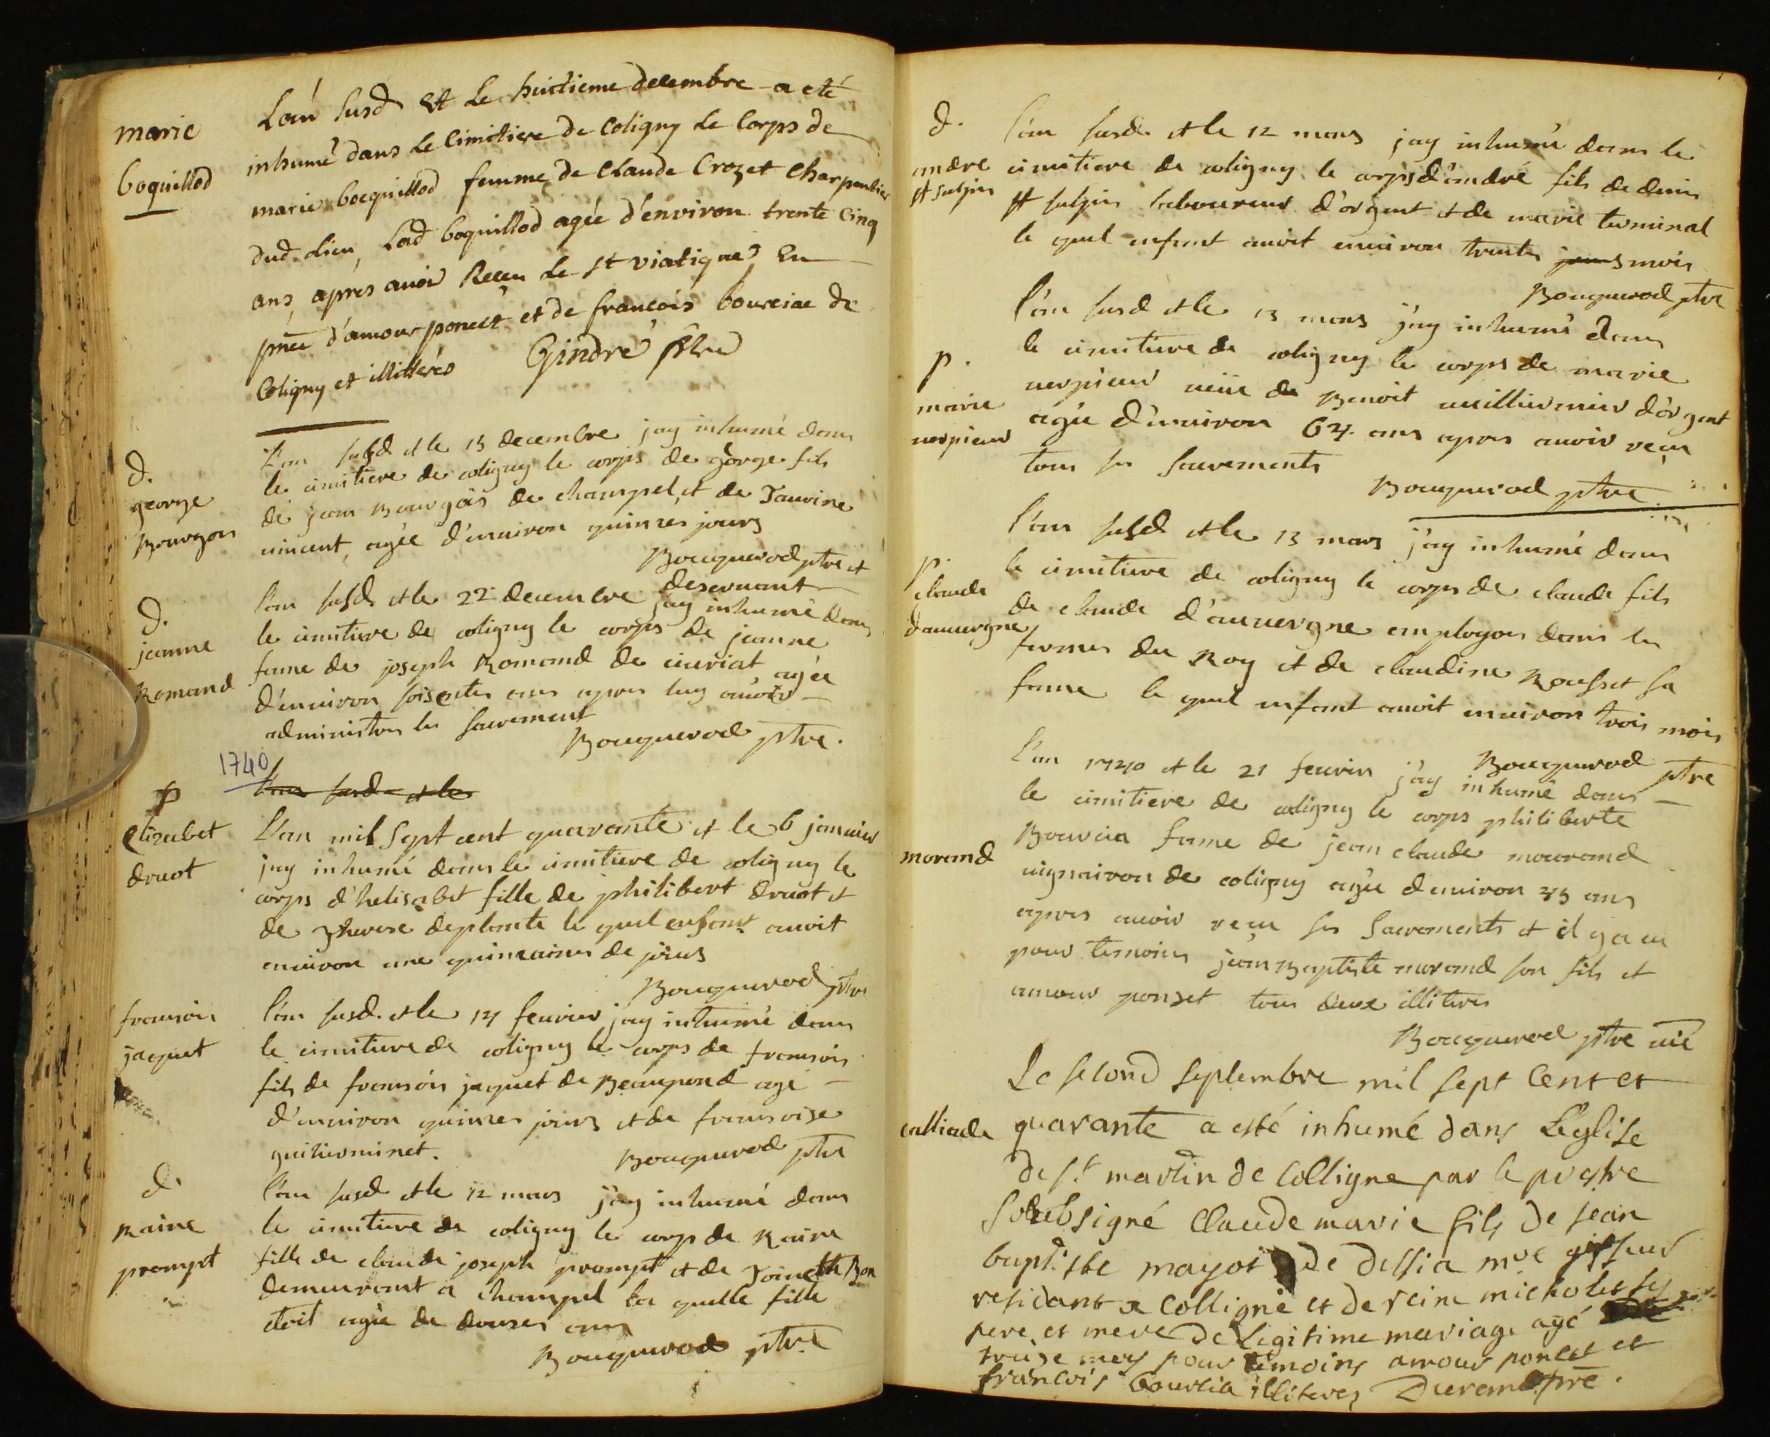 marie
boquillod
L'an susd et le huictieme decembre a eté
inhumé dans le cimitiere de Coligny le Corps de
marie bocquillod femme de Claude Crozet Charpentier
dud. lieu, Lad boquillod agée d'environ trente cinq
ans, apres avoir Receu le st viatique En
pnce d'amour poncet et de francois bourcier de
Coligny et illitterés Gindre ptre
d.
george
Bourgois
l'an susd et le 13 decembre jay inhumé dans
le cimitiere de coligny le corps de george fils
de jean Bourgois de champel, et de Taurine
vincent, agée d'environ quinzes jours
Bouquerod ptre et
deservant
d.
jeanne
Romand
l'an susd. et le 22 decembre jay inhumé dans
le cimitiere de coligny le corps de jeanne
fame de joseph Romand de civriat agée
d'environ soisentes ans apres luy avoir
administres les sacrement
Bouquerod ptre.
1740
l'an susd. et le
p
elizabet
druot
L'an mil sept cent quarante et le 6 janvier
jay inhumé dans le cimitiere de coligny le
corps d'helisabet fille de philibert druot et
de Therese deplante le quel enfant avoit
environ une quinzaines de jours
Bouquerod ptre
fransois
jaquet
l'an susd. et le 14 feuvrier jay inhumé dans
le cimitiere de coligny le corps de fransois
fils de fransois jaquet de Beaupond agé
d'environ quinzes jours et de fransoise
guillierminet.
Bouquerod ptre
d.
Raine
prompt
l'an susd et le 12 mars j'ay inhumé dans
le cimitiere de coligny le corps de Raine
fille de claude joseph prompt et de Toinette Bon
demeurant a champel la quelle fille
etoit agée de douzes ans
Bouquerod ptre
d.
andre
st sulpis
l'an susd. et le 12 mars jay inhumé dans le
cimitiere de coligny le corps d'andré fils de denis
st sulpis laboureur d'orgent et de marie terminal
le quel enfant avoit environ trentes jours mois
Bouquerod ptre
p.
marie
l'an susd et le 13 mars j'ay inhumé dans
le cimitiere de coligny le corps de marie
veüe de Benoit d'orgent
agée d'environ 64 ans apres avoir reçu
tous ses sacrements
Bouquerod ptre
p.
claude
dauvergne
l'an susd et le 13 mars j'ay inhumé dans
le cimitiere de coligny le corps de claude fils
de claude d'auvergne employer dans les
fermes du Roy et de claudine Rousset sa
fame le quel enfant avoit environ trois mois
Bouquerod ptre
morand
l'an 1740 et le 21 feuvrier j'ay inhumé dans
le cimitiere de coligny le corps philiberte
Bourcier fame de jean claude mourand
vigniron de coligny agée d'environ 45 ans
apres avoir reçu ses sacrements et il y a eu
pour temoins jean Baptiste morand son fils et
amour ponset tous deux illitires
Bouquerod ptre vic
Le second septembre mil sept Cent et
quarante a esté inhumé dans L'église
de st. martin de Colligne par le prestre
soubsigné Claude marie fils de jean
baptiste mayot de dessia mre
residant a Colligne et de reine micholet ses
pere et mere de Legitime mariage agé
treize mois pour temoins amour poncet et
francois bourcia illiteres ptre.